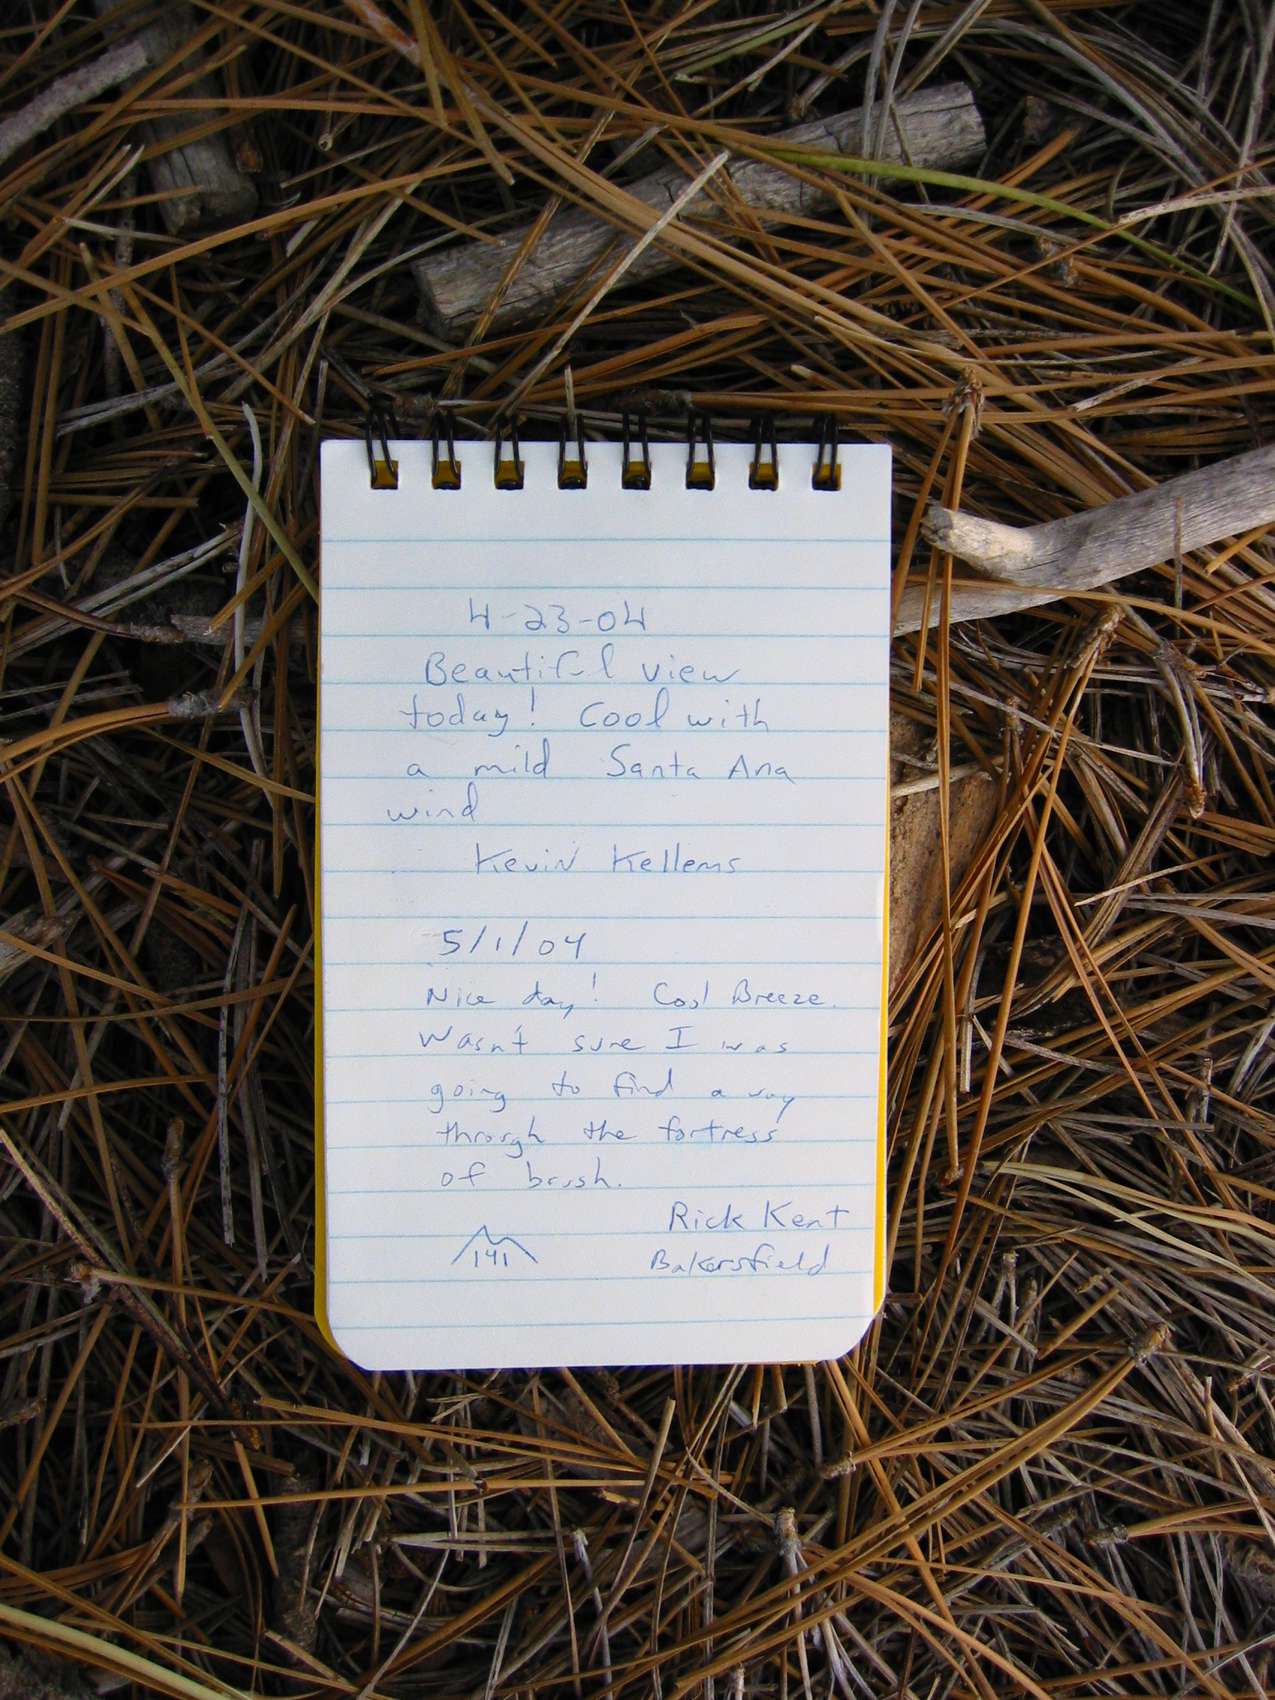 4-23-04
Beautiful view
today! Cool with
a mild Santa Ana
wind
Kevin Kellems
5/1/04
Nice day! Cool Breeze.
Wasn't sure I was
going to find a way
through the fortress
of brush.
Rick Kent
141 Bakersfield